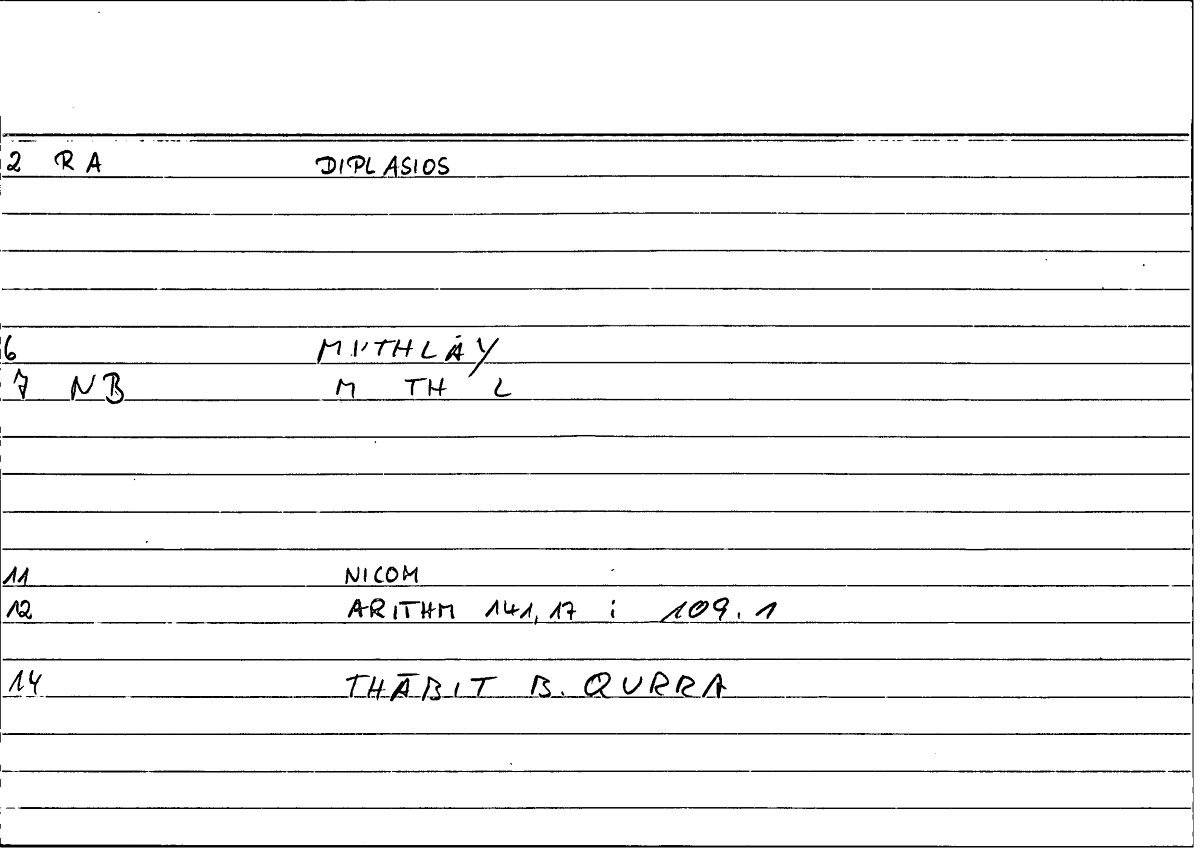 2 RA DIPLASIOS
6 MITHLĀY
7 NB M TH L
11 NICOM
12 ARITHM 141,17 ; 109.1
14 THĀBIT B. QURRA